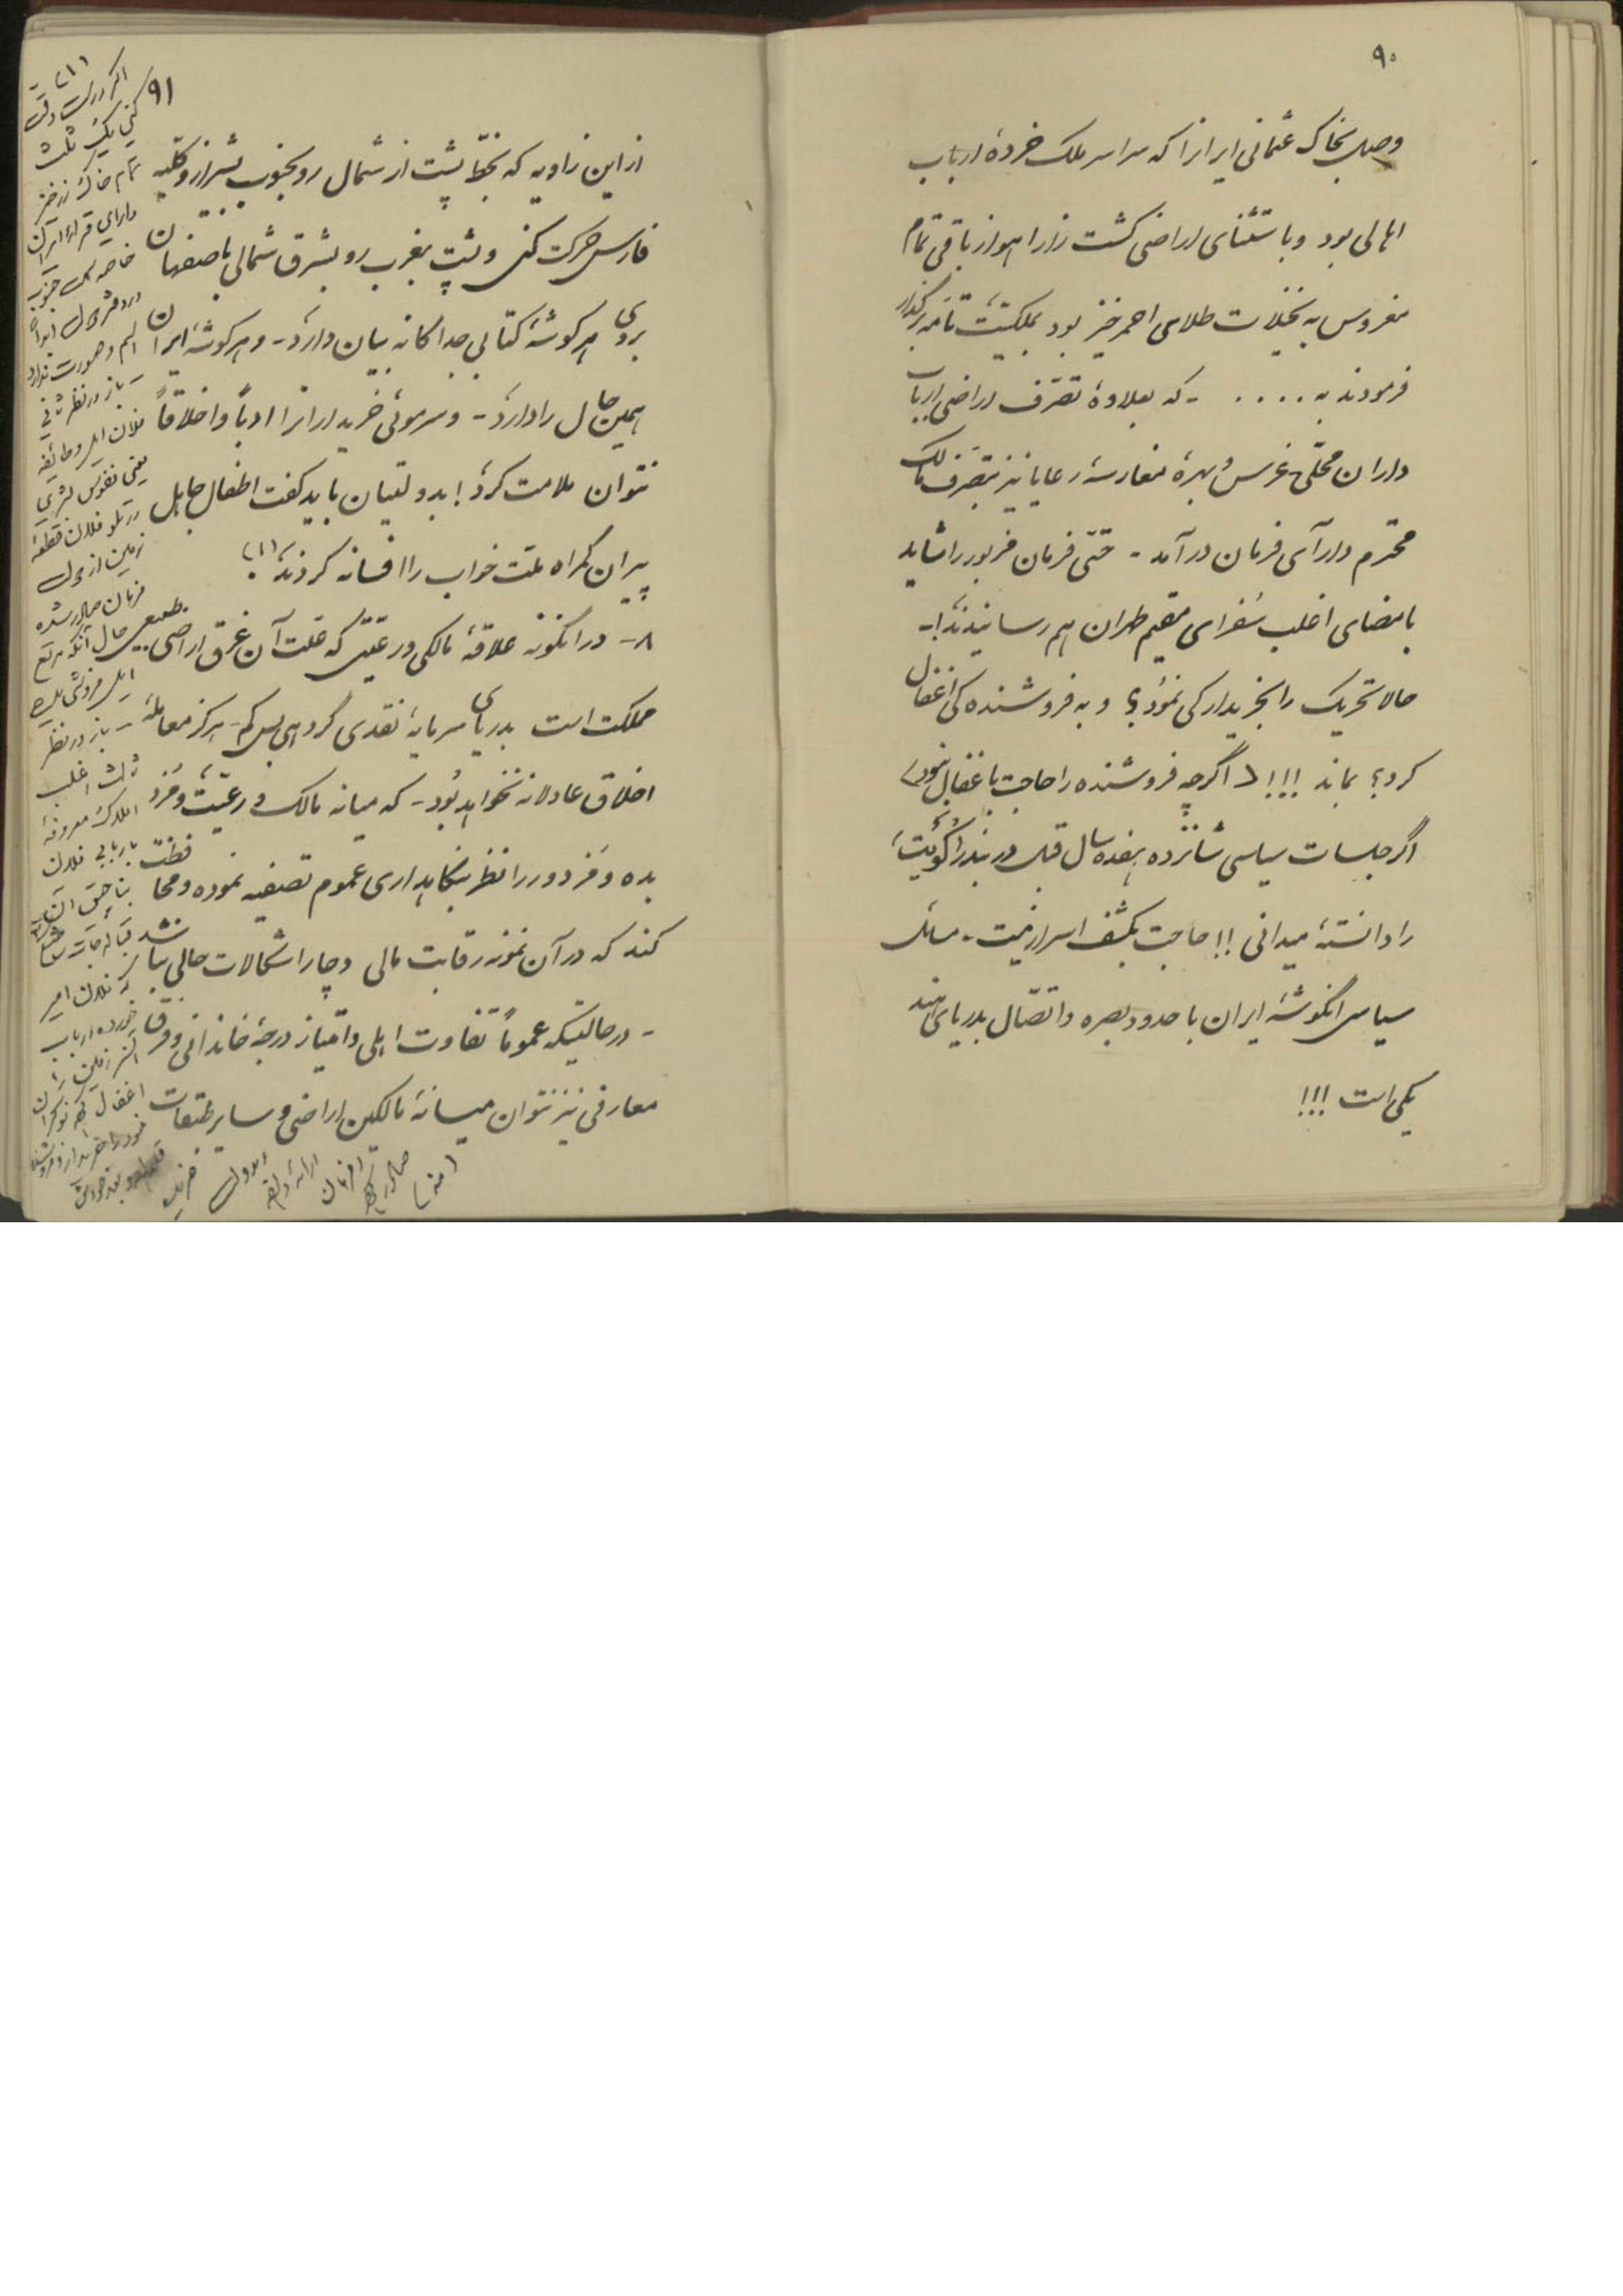 ۹۰
وصل بخاک عثمانی ایرانرا که سراسر ملک خردهٔ ارباب
اهالی بود و باستثنای اراضی کشت زار اهواز باقی تمام
مغروس به نخیلات طلای احمر خیز بود بملکیّت
فرمودند به . . . . ـ که بعلاوهٔ تصرّف اراضی ارباب
داران محلّی غرس و بهرهٔ مغارسهٔ رعایا نیز بتصرّف مالک
محترم دارای فرمان درآمد ـ حتّی فرمان مزبور را شاید
بامضای اغلب سُفرای مقیم طهران هم رسانیدند!ـ
حالا تحریک را بخریدار کی نمود؟ و به فروشنده کی اغفال
کرد؟ بماند !!! (اگرچه فروشنده را حاجت باغفال نبود)
اگر جلسات سیاسی شانزده هفده سال قبل در بندر کویت
را دانستهٔ میدانی !! حاجت بکشف اسرار نیست ـ مسائل
سیاسی اینگوشهٔ ایران با حدود بصره و اتّصال بدریای هند
یکی است !!!
۹۱
از این زاویه که بخطّ پشت از شمال رو بجنوب بشیراز و کلّیه
فارس حرکت کنی و پشت بغرب رو بشرق شمالی باصفهان
بروی هر گوشهٔ کتابی جداگانه بیان دارد ـ و هر گوشهٔ ایران
همین حال را دارد ـ و سرموئی خریداران را ادباً و اخلاقاً
نتوان ملامت کرد! بدولتیان باید گفت اطفال جاهل
پیران گمراه ملّت خواب را افسانه کردند! (۱)
۸ـ در اینگونه علاقهٔ مالکی و رعیّتی که علّت آن غرق اراضی
مملکت است بدریای سرمایهٔ نقدی گروهی بس کم ـ هرگز معامله
اخلاق عادلانه نخواهد بود ـ که میانه مالک و رعیّت و مُزد
بده و مُزدور را نظر بنگاهداری عموم تصفیه نموده و محا فظت
کند که در آن نمونه رقابت مالی دچار اشکالات حالی نباشد
ـ در حالتیکه عموماً تفاوت ایلی و امتیاز درجهٔ خاندانی و فرق
معارفی نیز نتوان میانهٔ مالکین اراضی و سایر طبقات
(۱)
اگر درست دقت
کنی یک ثلث
تمام خاک زرخیز
دارای قراء ایران
خاصه
اسم و صورت ندارد
ـ باز در نظر ثانی
فلان ایل و طائفه
یعنی نفوس بشری
فلان قطعهٔ
زمین از
فرمان صادر شده
حال آنکه مرتع
ـ باز در نظر
ثالث اغلب
املاک معروفهٔ
باربابی فلان
قباله‌جات
که فلان امیر
خورده ارباب
اغفال
خود را خریدار و فروشنده